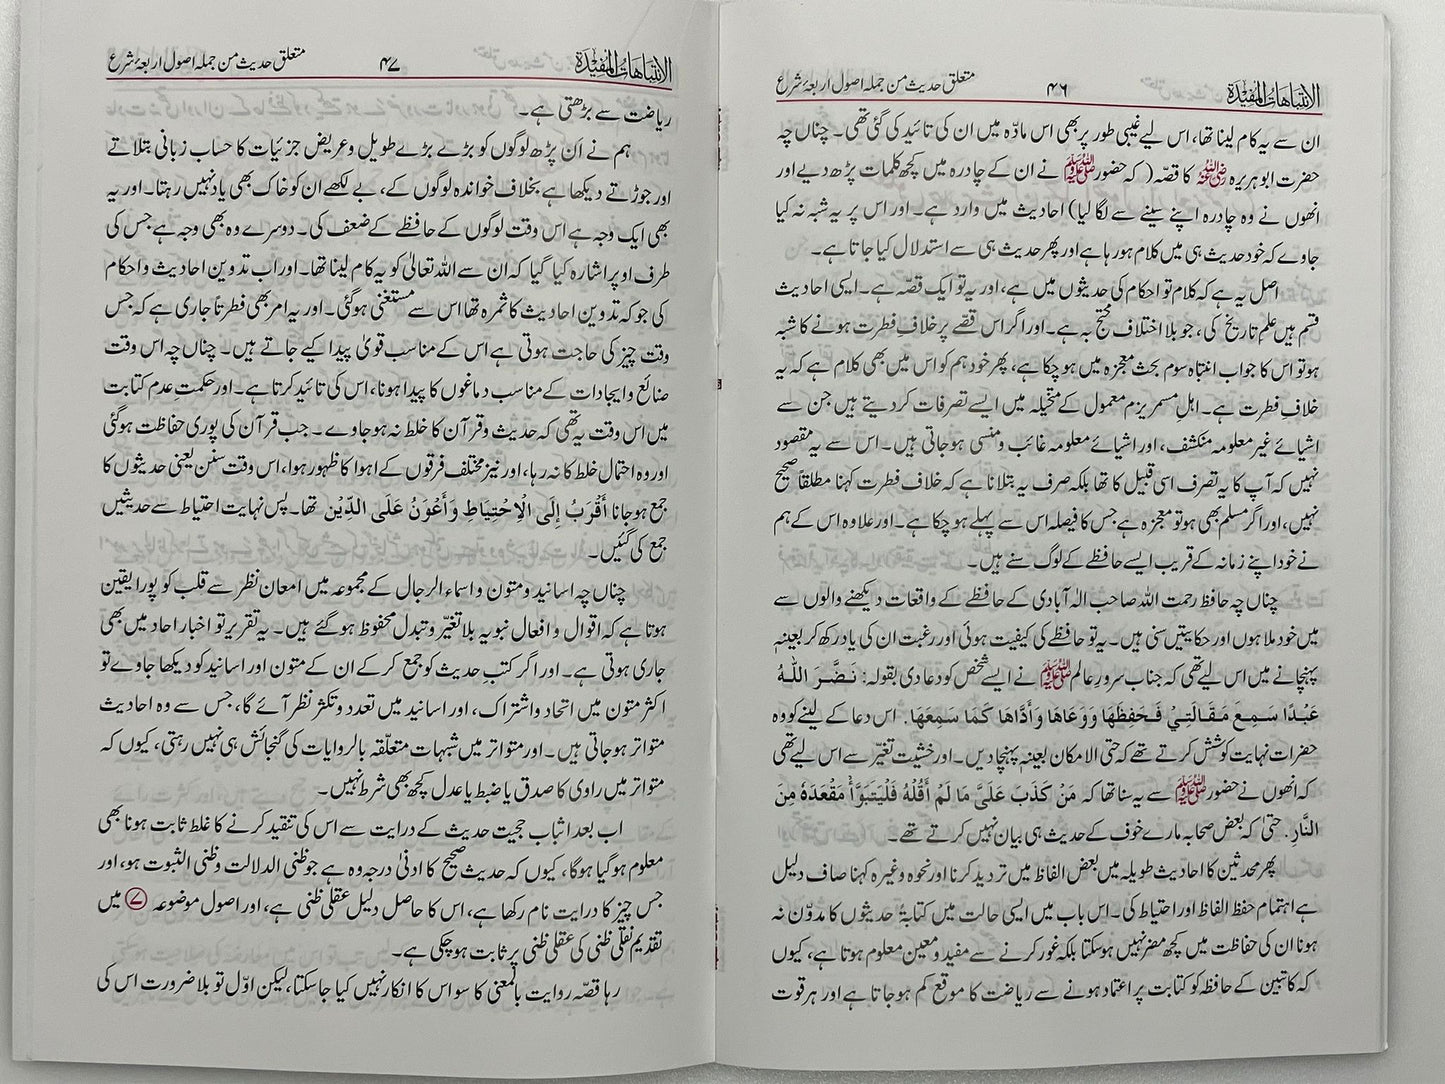 الانتباهات المفیدة ۴۶ متعلق حدیث من جملہ اصول اربعۂ شرع
ان سے یہ کام لینا تھا، اس لیے غیبی طور پر بھی اس مادّہ میں ان کی تائید کی گئی تھی۔ چناں چہ
حضرت ابوہریرہ رضی اللہ عنہ کا قصّہ (کہ حضور ﷺ نے ان کے چادرہ میں کچھ کلمات پڑھ دیے اور
انھوں نے وہ چادرہ اپنے سینے سے لگا لیا) احادیث میں وارد ہے۔ اور اس پر یہ شبہ نہ کیا
جاوے کہ خود حدیث ہی میں کلام ہو رہا ہے اور پھر حدیث ہی سے استدلال کیا جاتا ہے۔
اصل یہ ہے کہ کلام تو احکام کی حدیثوں میں ہے، اور یہ تو ایک قصّہ ہے۔ ایسی احادیث
قسم ہیں علمِ تاریخ کی، جو بلا اختلاف محتج بہ ہے۔ اور اگر اس قصّے پر خلافِ فطرت ہونے کا شبہ
ہو تو اس کا جواب انتباہ سوم بحث معجزہ میں ہوچکا ہے، پھر خود ہم کو اس میں بھی کلام ہے کہ یہ
خلاف فطرت ہے۔ اہلِ مسمریزم معمول کے متخیلہ میں ایسے تصرفات کردیتے ہیں جن سے
اشیائے غیر معلومہ منکشف، اور اشیائے معلومہ غائب و منسی ہوجاتی ہیں۔ اس سے یہ مقصود
نہیں کہ آپ کا یہ تصرف اسی قبیل کا تھا بلکہ صرف یہ بتلانا ہے کہ خلاف فطرت کہنا مطلقاً صحیح
نہیں، اور اگر مسلم بھی ہو تو معجزہ ہے جس کا فیصلہ اس سے پہلے ہوچکا ہے۔ اور علاوہ اس کے ہم
نے خود اپنے زمانہ کے قریب ایسے حافظے کے لوگ سنے ہیں۔
چناں چہ حافظ رحمت اللہ صاحب الٰہ آبادی کے حافظے کے واقعات دیکھنے والوں سے
میں خود ملا ہوں اور حکایتیں سنی ہیں۔ یہ تو حافظے کی کیفیت ہوئی اور رغبت ان کی یاد رکھ کر بعینہٖ
پہنچانے میں اس لیے تھی کہ جناب سرورِ عالم ﷺ نے ایسے شخص کو دعا دی بقولہ: نَضَّرَ اللّٰهُ
عَبْدًا سَمِعَ مَقَالَتِيْ فَحَفِظَهَا وَوَعَاهَا وَأَدَّاهَا كَمَا سَمِعَهَا. اس دعا کے لینے کو وہ
حضرات نہایت کوشش کرتے تھے کہ حتی الامکان بعینہٖ پہنچا دیں۔ اور خشیت تغیّر سے اس لیے تھی
کہ انھوں نے حضور ﷺ سے یہ سنا تھا کہ مَنْ كَذَبَ عَلَيَّ مَا لَمْ أَقُلْهُ فَلْيَتَبَوَّأْ مَقْعَدَهُ مِنَ
النَّارِ. حتی کہ بعض صحابہ مارے خوف کے حدیث ہی بیان نہیں کرتے تھے۔
پھر محدثین کا احادیث طویلہ میں بعض الفاظ میں تردید کرنا اور نحوہ وغیرہ کہنا صاف دلیل
ہے اہتمام حفظ الفاظ اور احتیاط کی۔ اس باب میں ایسی حالت میں کتابۃً حدیثوں کا مدوّن نہ
ہونا ان کی حفاظت میں کچھ مضر نہیں ہوسکتا بلکہ غور کرنے سے مفید و معین معلوم ہوتا ہے، کیوں
کہ کاتبین کے حافظہ کو کتابت پر اعتماد ہونے سے ریاضت کا موقع کم ہوجاتا ہے اور ہر قوت
الانتباهات المفیدة ۴۷ متعلق حدیث من جملہ اصول اربعۂ شرع
ریاضت سے بڑھتی ہے۔
ہم نے اَن پڑھ لوگوں کو بڑے بڑے طویل و عریض جزئیات کا حساب زبانی بتلاتے
اور جوڑتے دیکھا ہے بخلاف خواندہ لوگوں کے، بے لکھے ان کو خاک بھی یاد نہیں رہتا۔ اور یہ
بھی ایک وجہ ہے اس وقت لوگوں کے حافظے کے ضعف کی۔ دوسرے وہ بھی وجہ ہے جس کی
طرف اوپر اشارہ کیا گیا کہ ان سے اللہ تعالیٰ کو یہ کام لینا تھا۔ اور اب تدوین احادیث و احکام
کی جو کہ تدوین احادیث کا ثمرہ تھا اس سے مستغنی ہوگئی۔ اور یہ امر بھی فطرتاً جاری ہے کہ جس
وقت چیز کی حاجت ہوتی ہے اس کے مناسب قویٰ پیدا کیے جاتے ہیں۔ چناں چہ اس وقت
صنائع و ایجادات کے مناسب دماغوں کا پیدا ہونا، اس کی تائید کرتا ہے۔ اور حکمتِ عدم کتابت
میں اس وقت یہ تھی کہ حدیث و قرآن کا خلط نہ ہوجاوے۔ جب قرآن کی پوری حفاظت ہوگئی
اور وہ احتمال خلط کا نہ رہا، اور نیز مختلف فرقوں کے اہوا کا ظہور ہوا، اس وقت سنن یعنی حدیثوں کا
جمع ہوجانا أَقْرَبُ إِلَى الْاِحْتِيَاطِ وَأَعْوَنُ عَلَى الدِّيْنِ تھا۔ پس نہایت احتیاط سے حدیثیں
جمع کی گئیں۔
چناں چہ اسانید و متون و اسماء الرجال کے مجموعہ میں امعان نظر سے قلب کو پورا یقین
ہوتا ہے کہ اقوال و افعال نبویہ بلا تغیّر و تبدل محفوظ ہو گئے ہیں۔ یہ تقریر تو اخبار احاد میں بھی
جاری ہوتی ہے۔ اور اگر کتبِ حدیث کو جمع کرکے ان کے متون اور اسانید کو دیکھا جاوے تو
اکثر متون میں اتحاد و اشتراک، اور اسانید میں تعدد و تکثر نظر آئے گا، جس سے وہ احادیث
متواتر ہوجاتی ہیں۔ اور متواتر میں شبہات متعلّقہ بالروایات کی گنجائش ہی نہیں رہتی، کیوں کہ
متواتر میں راوی کا صدق یا ضبط یا عدل کچھ بھی شرط نہیں۔
اب بعد اثباب حجیت حدیث کے درایت سے اس کی تنقید کرنے کا غلط ثابت ہونا بھی
معلوم ہوگیا ہوگا، کیوں کہ حدیث صحیح کا ادنیٰ درجہ وہ ہے جو ظنی الدلالت و ظنی الثبوت ہو، اور
جس چیز کا درایت نام رکھا ہے، اس کا حاصل دلیل عقلی ظنی ہے، اور اصول موضوعہ ۷ میں
تقدیم نقلی ظنی کی عقلی ظنی پر ثابت ہوچکی ہے۔
رہا قصّہ روایت بالمعنی کا سو اس کا انکار نہیں کیا جاسکتا، لیکن اوّل تو بلا ضرورت اس کی